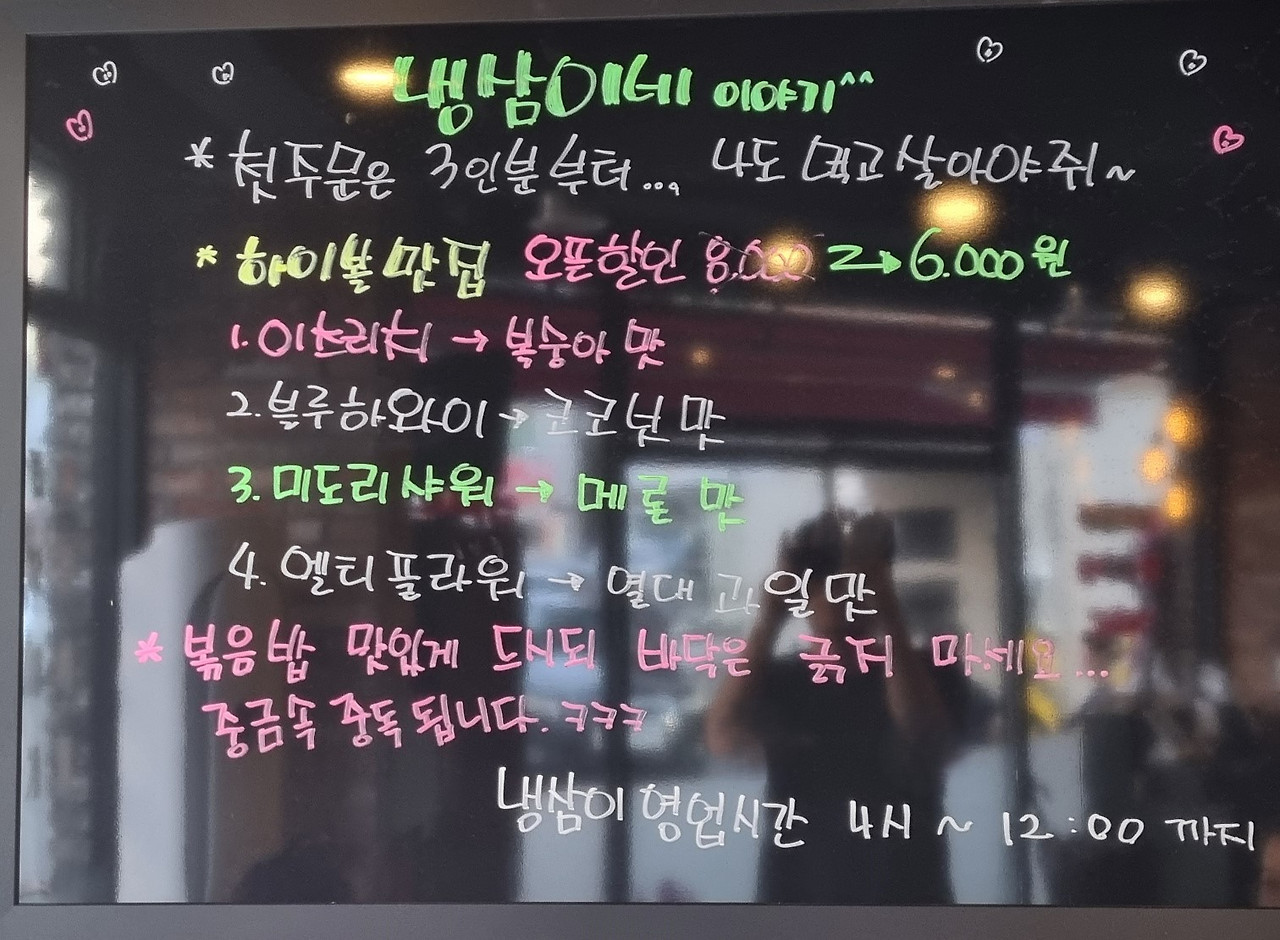 냉삼이네 이야기^^
* 첫주문은 3인분부터... 나도 먹고살아야쥐~
* 하이볼맛집 오픈할인 8.000 → 6.000원
1. 이츠리치 → 복숭아 맛
2. 블루하와이 → 코코넛 맛
3. 미도리샤워 → 메론 맛
4. 엘더플라워 → 열대 과일맛
* 볶음밥 맛있게 드시되 바닥은 긁지 마세요...
중금속 중독 됩니다. ㅋㅋㅋ
냉삼이 영업시간 4시 ~ 12:00 까지